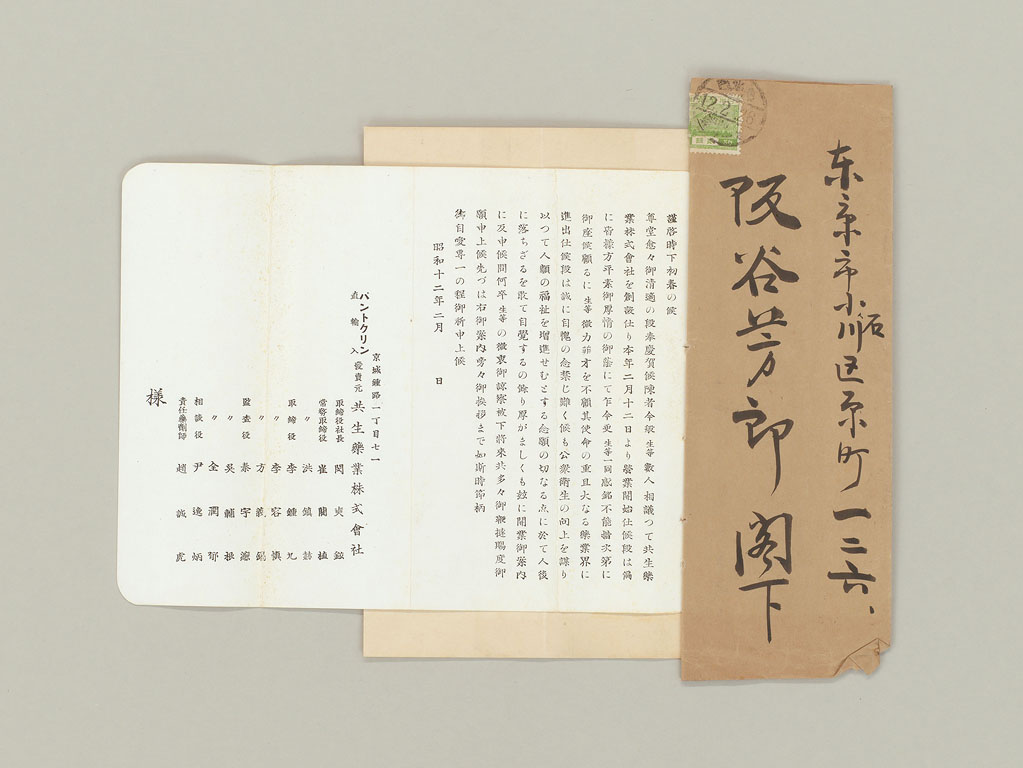 東京市小石川区原町一二六、
阪谷芳郎 閣下
謹啓時下初春の候
尊堂愈々御清適の段奉慶賀候陳者今般生等數人相議つて共生藥
業株式會社を創設仕り本年二月十二日より營業開始仕候段は偏
に皆樣方平素御厚情の御蔭にて乍今更生等一同感銘不能措次第に
御座候顧るに生等微力菲才を不顧其使命の重且大なる藥業界に
進出仕候段は誠に自愧の念禁じ難く候も公衆衛生の向上を謀り
以つて人類の福祉を增進せむとする念願の切なる点に於て人後
に落ちざるを敢て自覺するの餘り厚がましくも玆に開業御案内
に及申候間何卒生等の微衷御諒察被下將來共多々御鞭撻賜度御
願申上候先づは右御案内旁々御挨拶まで如斯時節柄
御自愛專一の程御祈申上候
昭和十二年二月 日
京城鍾路一丁目七一
パントクリン
直輸入發賣元 共生藥業株式會社
取締役社長 閔奭鉉
常務取締役 崔蘭植
〃 洪鎮
取締役 李鍾
〃 李容愼
〃 方義錫
監査役 秦字
〃 吳輔根
〃 金潤郁
相談役 尹逸炳
責任藥劑師 趙誠虎
樣
12.2